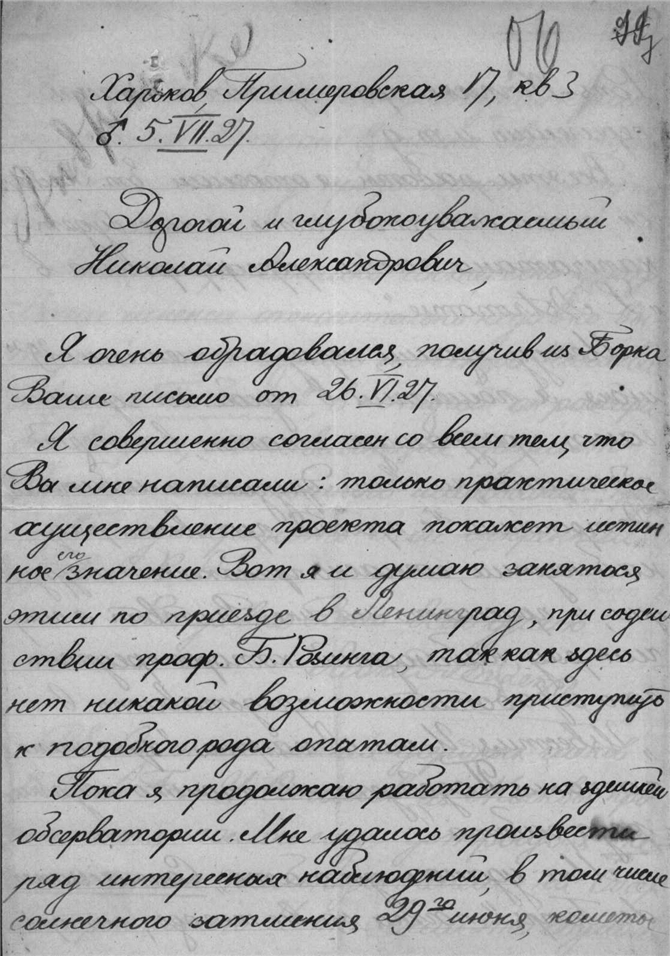 Об
Харьков, Примеровская 17, кв 3
5.VII.27.
Дорогой и глубокоуважаемый
Николай Александрович,
Я очень обрадовался, получив из Борка
Ваше письмо от 26.VI.27.
Я совершенно согласен со всем тем, что
Вы мне написали: только практическое
осуществление проекта покажет истин
ное его значение. Вот я и думаю заняться
этим по приезде в Ленинград, при содей
ствии проф. Б. Розинга, так как здесь
нет никакой возможности приступить
к подобного рода опытам.
Пока я продолжаю работать на здешней
обсерватории. Мне удалось произвести
ряд интересных наблюдений, в том числе
солнечного затмения 29го июня, кометы